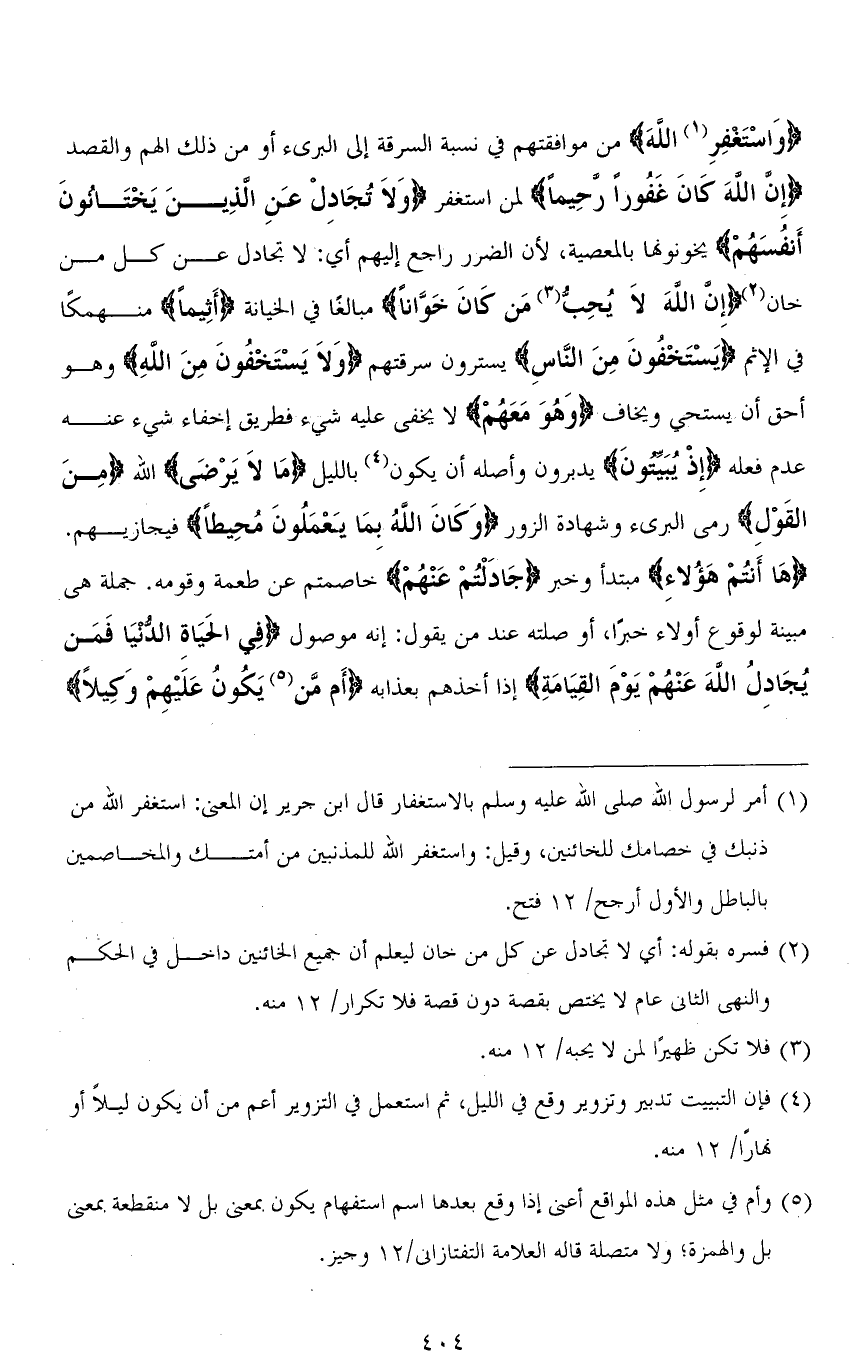 ﴿وَاسْتَغْفِرِ(١) اللَّهَ﴾ من موافقتهم في نسبة السرقة إلى البرىء أو من ذلك الهم والقصد
﴿إِنَّ اللَّهَ كَانَ غَفُوراً رَّحِيماً﴾ لمن استغفر ﴿وَلاَ تُجَادِلْ عَنِ الَّذِيــنَ يَخْتَــانُونَ
أَنفُسَهُمْ﴾ يخونونها بالمعصية، لأن الضرر راجع إليهم أي: لا تجادل عــن كــل مــن
خان(٢)﴿إِنَّ اللَّهَ لاَ يُحِبُّ(٣) مَن كَانَ خَوَّاناً﴾ مبالغًا في الخيانة ﴿أَثِيماً﴾ منــهمكًا
في الإثم ﴿يَسْتَخْفُونَ مِنَ النَّاسِ﴾ يسترون سرقتهم ﴿وَلاَ يَسْتَخْفُونَ مِنَ اللَّهِ﴾ وهــو
أحق أن يستحي ويخاف ﴿وَهُوَ مَعَهُمْ﴾ لا يخفى عليه شيء فطريق إخفاء شيء عنــه
عدم فعله ﴿إِذْ يُبَيِّتُونَ﴾ يدبرون وأصله أن يكون(٤) بالليل ﴿مَا لاَ يَرْضَى﴾ الله ﴿مِــنَ
القَوْلِ﴾ رمى البرىء وشهادة الزور ﴿وَكَانَ اللَّهُ بِمَا يَعْمَلُونَ مُحِيطاً﴾ فيجازيــهم.
﴿هَا أَنتُمْ هَؤُلاءِ﴾ مبتدأ وخبر ﴿جَادَلْتُمْ عَنْهُمْ﴾ خاصمتم عن طعمة وقومه. جملة هى
مبينة لوقوع أولاء خبرًا، أو صلته عند من يقول: إنه موصول ﴿فِي الحَيَاةِ الدُّنْيَا فَمَــن
يُجَادِلُ اللَّهَ عَنْهُمْ يَوْمَ القِيَامَةِ﴾ إذا أخذهم بعذابه ﴿أَم مَّن(٥) يَكُونُ عَلَيْهِمْ وَكِيلاً﴾
(١) أمر لرسول الله صلى الله عليه وسلم بالاستغفار قال ابن جرير إن المعنى: استغفر الله من
ذنبك في خصامك للخائنين، وقيل: واستغفر الله للمذنبين من أمتــك والمخــاصمين
بالباطل والأول أرجح/ ١٢ فتح.
(٢) فسره بقوله: أي لا تجادل عن كل من خان ليعلم أن جميع الخائنين داخــل في الحكــم
والنهى الثانى عام لا يختص بقصة دون قصة فلا تكرار/ ١٢ منه.
(٣) فلا تكن ظهيرًا لمن لا يحبه/ ١٢ منه.
(٤) فإن التبييت تدبير وتزوير وقع في الليل، ثم استعمل في التزوير أعم من أن يكون ليــلاً أو
نهارًا/ ١٢ منه.
(٥) وأم في مثل هذه المواقع أعنى إذا وقع بعدها اسم استفهام يكون بمعنى بل لا منقطعة بمعنى
بل والهمزة؛ ولا متصلة قاله العلامة التفتازانى/١٢ وجيز.
٤٠٤